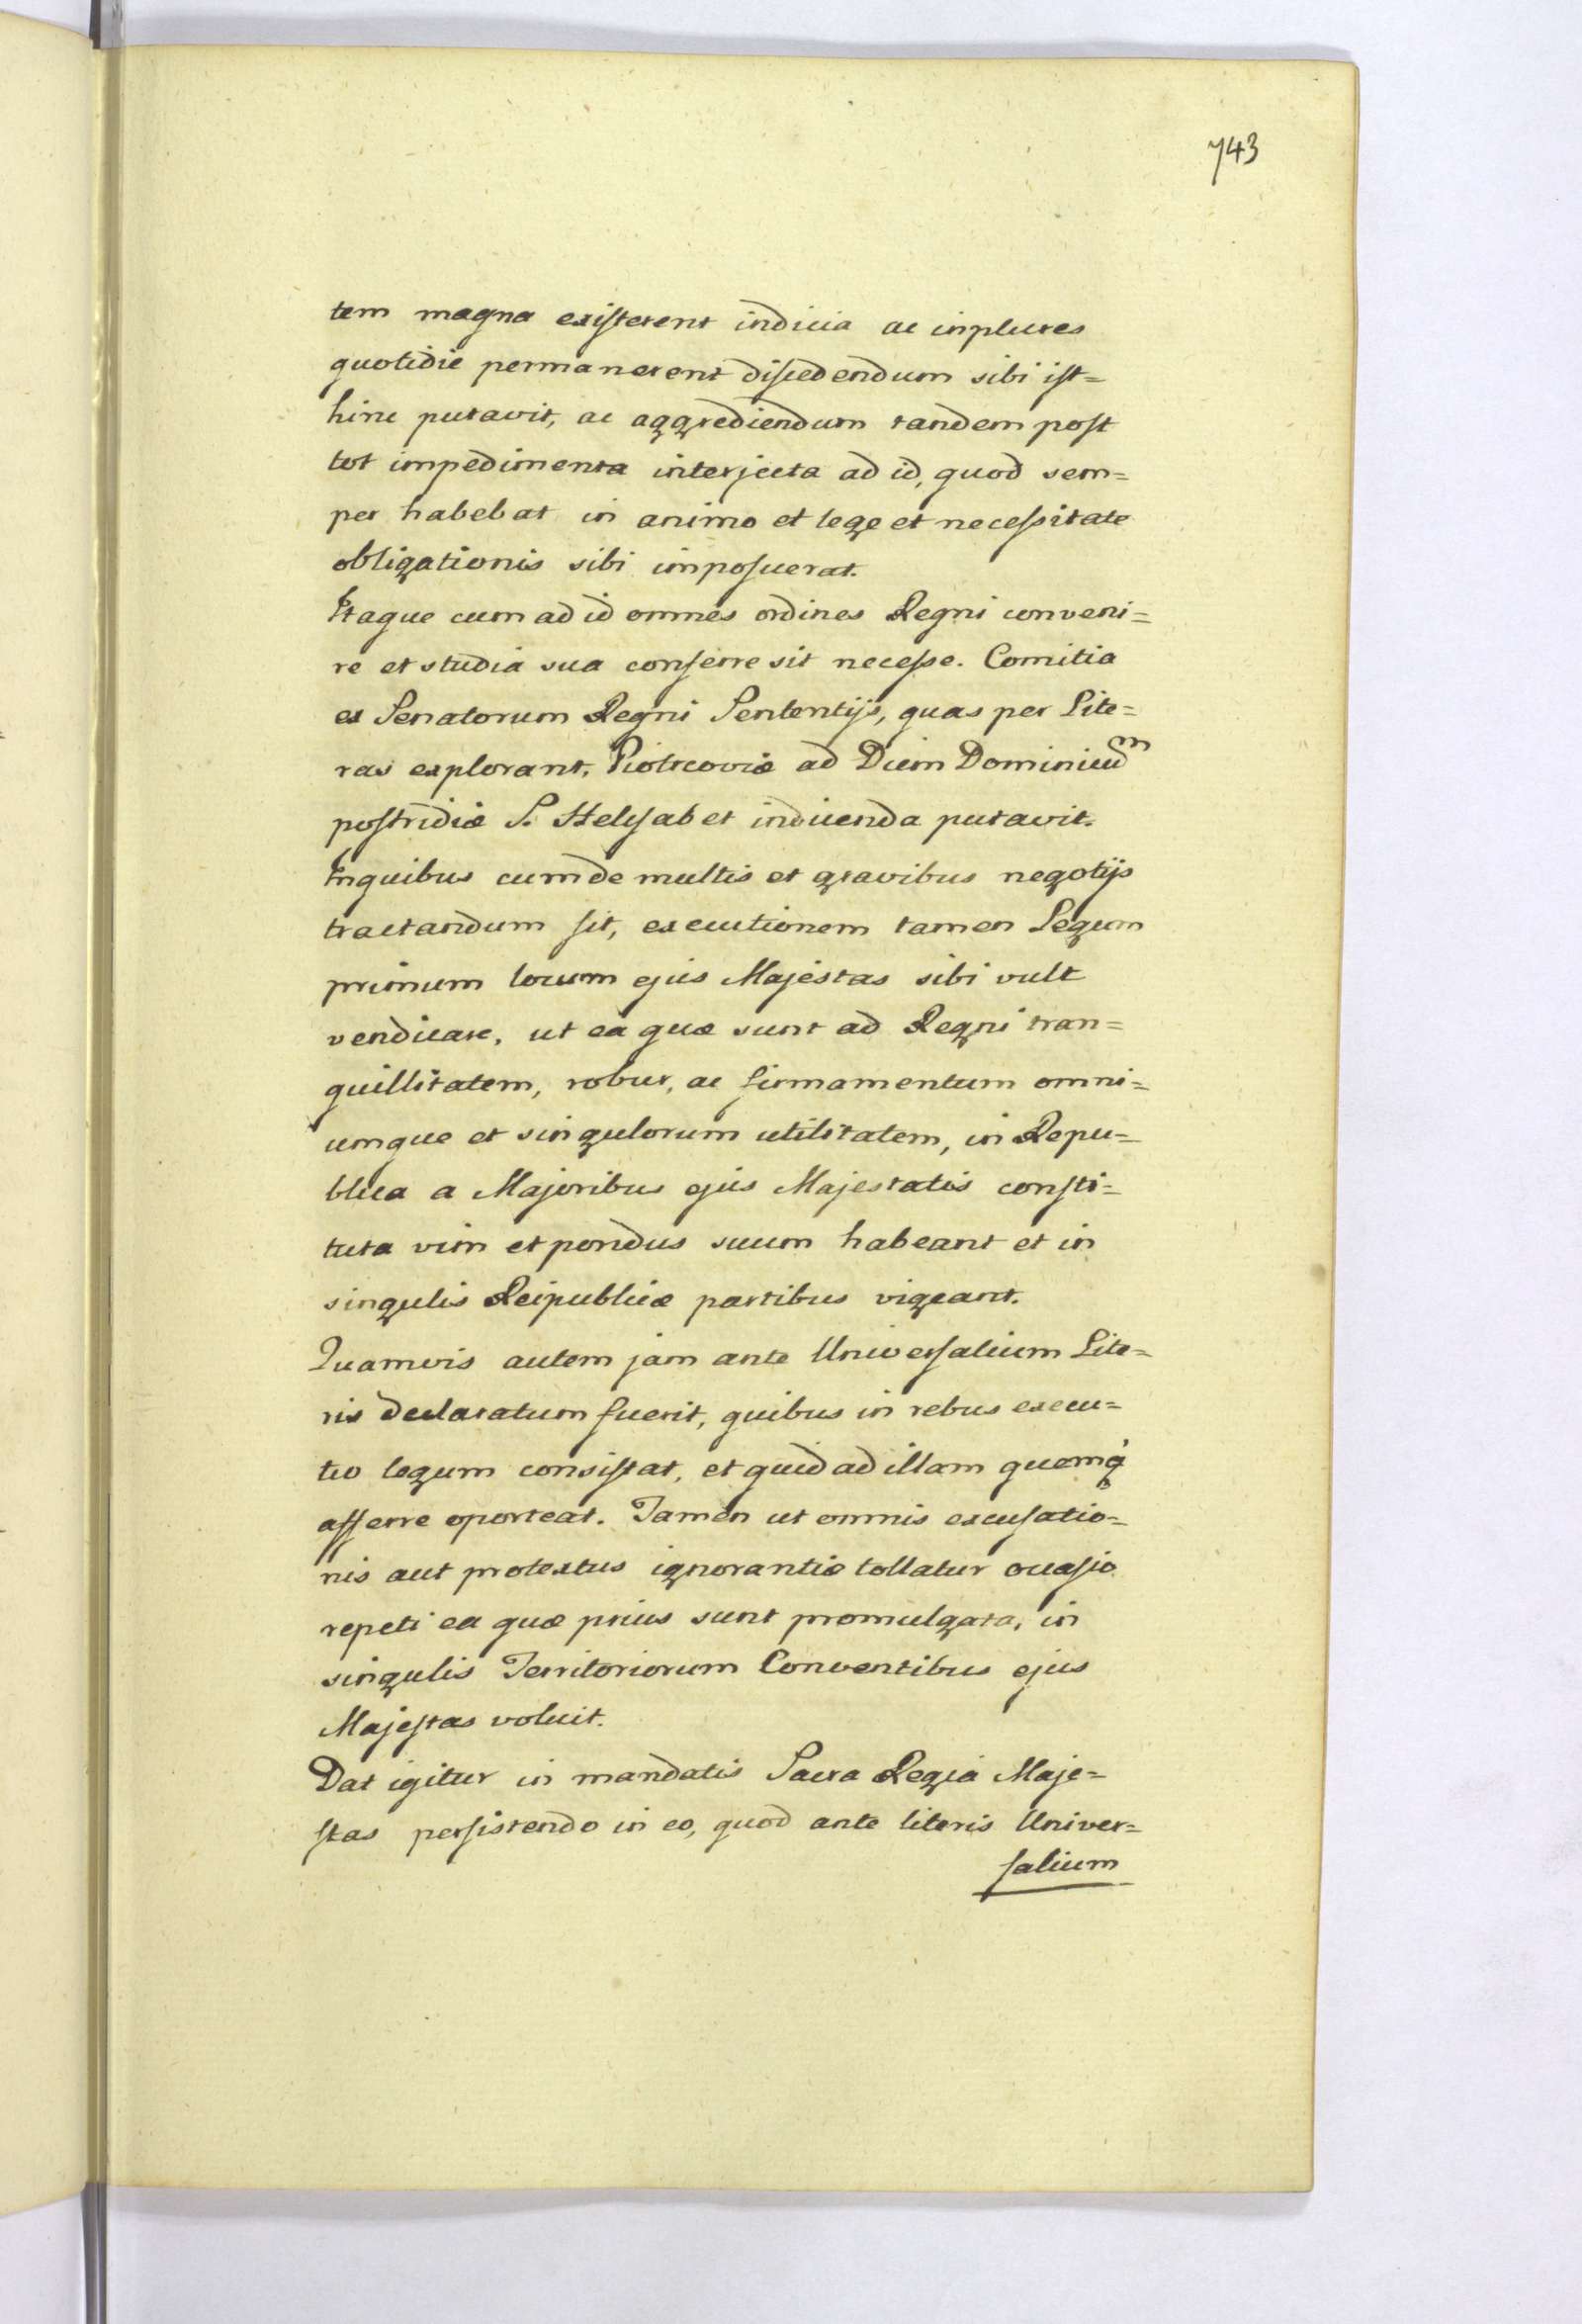 743
tem magna existerent indicia ac inplures
quotidie permanerent discedendum sibi ist=
hinc putavit, ac aggrediendum tandem post
tot impedimenta interjecta ad id, quod sem=
per habebat in animo et lege et necessitate
obligationis sibi imposuerat.
Itaque cum ad id omnes ordines Regni conveni=
re et studia sua conferre sit necesse. Comitia
ex Senatorum Regni Sententijs, quas per Lite=
ras explorant, Piotrcoviæ ad Diem Dominicũm
postridiæ S. Helisabet indicenda putavit.
Inquibus cum de multis et gravibus negotijs
tractandum sit, executionem tamen Legum
primum locum ejus Majestas sibi vult
vendicare, ut ea quæ sunt ad Regni tran=
quillitatem, robur, ac firmamentum omni=
umque et singulorum utilitatem, in Repu=
blica a Majoribus ejus Majestatis consti=
tuta vim et pondus suum habeant et in
singulis Reipublicæ partibus vigeant.
Quamvis autem jam ante Universalium Lite=
ris declaratum fuerit, quibus in rebus execu=
tio legum consistat, et quid ad illam quemq́
afferre oporteat. Tamen ut omnis excusatio=
nis aut protextus ignorantiæ tollatur occasio
repeti ea quæ prius sunt promulgata, in
singulis Territoriorum Conventibus ejus
Majestas voluit.
Dat igitur in mandatis Sacra Regia Maje=
stas persistendo in eo, quod ante literis Univer=
salium